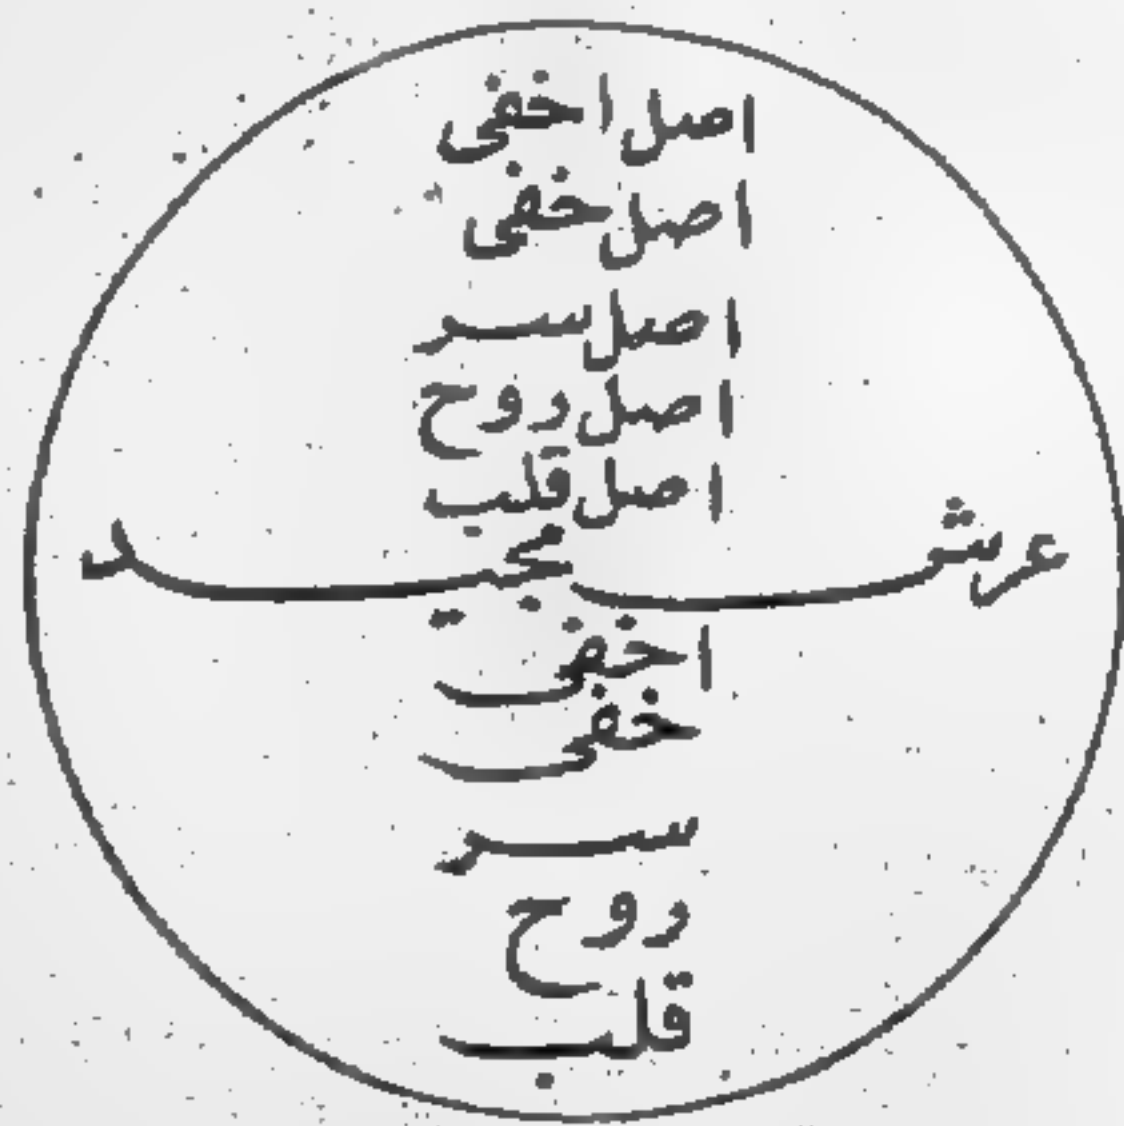 اصل اخفى
اصل خفى
اصل سر
اصل روح
اصل قلب
عرش مجيد
اخفى
خفى
سر
روح
قلب